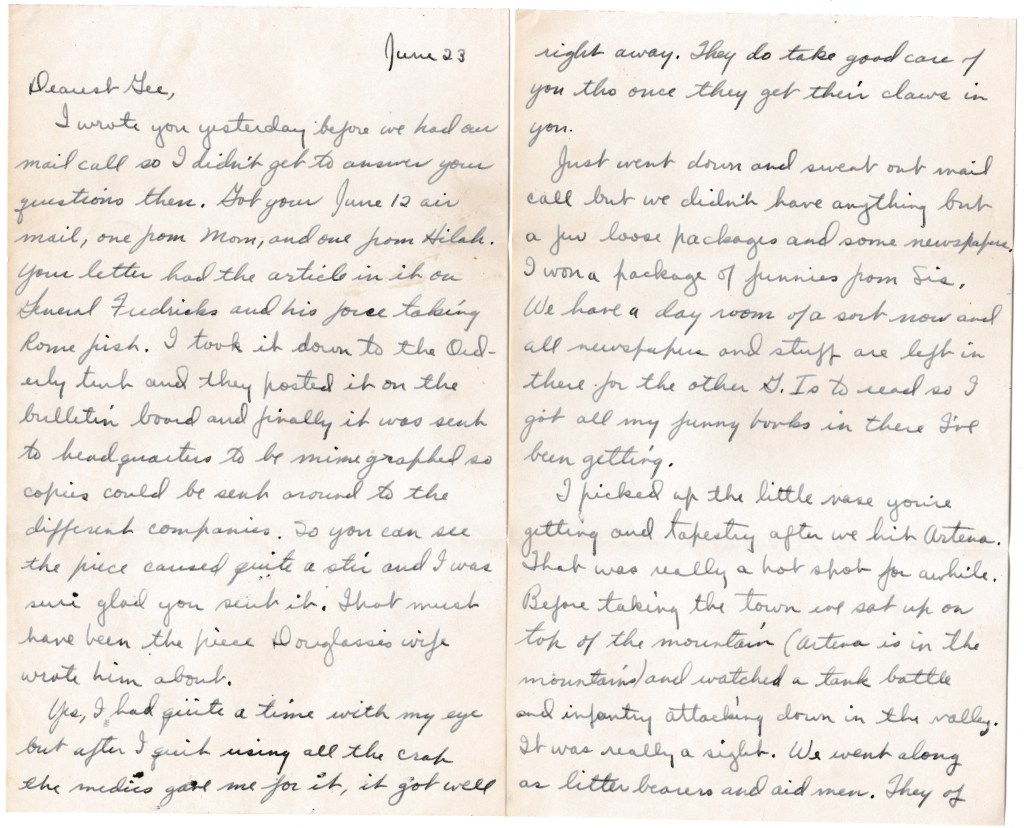 June 23
Dearest Gee,
I wrote you yesterday before we had our
mail call so I didn't get to answer your
questions then. Got your June 12 air
mail, one from Mom, and one from Hilah.
Your letter had the article in it on
General Fredricks and his force taking
Rome first. I took it down to the Ord-
erly tent and they posted it on the
bulletin board and finally it was sent
to headquarters to be mimegraphed so
copies could be sent around to the
different companies. So you can see
the piece caused quite a stir and I was
sure glad you sent it. That must
have been the piece Douglass's wife
wrote him about.
Yes, I had quite a time with my eye
but after I quit using all the crap
the medics gave me for it, it got well
right away. They do take good care of
you tho once they get their claws in
you.
Just went down and sweat out mail
call but we didn't have anything but
a few loose packages and some newspapers.
I won a package of funnies from Sis.
We have a day room of a sort now and
all newspapers and stuff are left in
there for the other G.Is to read so I
got all my funny books in there I've
been getting.
I picked up the little vase you're
getting and tapestry after we hit Artena.
That was really a hot spot for awhile.
Before taking the town we sat up on
top of the mountain (Artena is in the
mountains) and watched a tank battle
and infantry attacking down in the valley.
It was really a sight. We went along
as litter bearers and aid men. They of